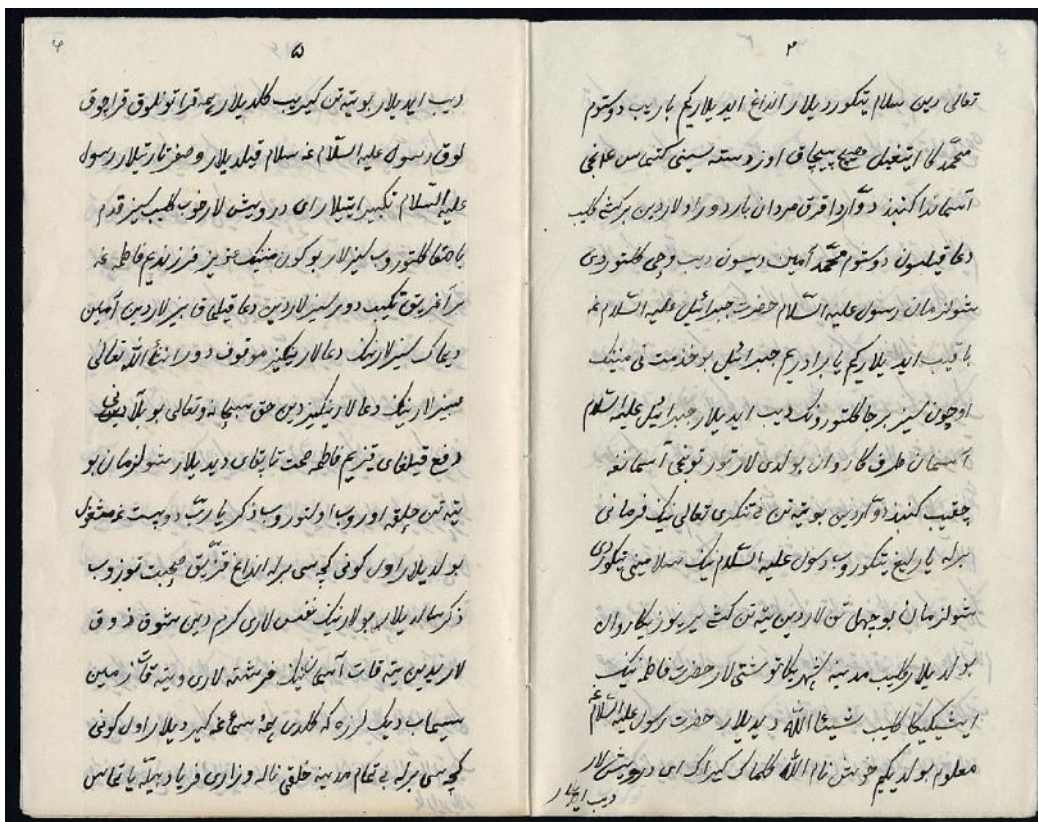 ۴
تعالی دین سلام یتکوردیلار انداغ ایدیلاریکم باریب دوستوم
محمد کا ایتغیل هیچ پیچاق اوز دسته سینی کسماس ۴ نجی
آسماندا کنبذ دواردا قرق مردان باردور اولاردین بر کشی کلیب
دعا قیلسون دوستوم محمد آمین دیسون دیب وحی کلتوردی
شولزمان رسول علیه السلام حضرت جبرائیل علیه السلام غه
باقیب ایدیلاریکم یا برادریم جبرائیل بو خدمت نی مینیک
اوچون سیز برجا کلتورونک دیب ایدیلار جبرائیل علیه السلام
آسمان طرف کا روان بولدی لار تورتونجی آسمانغه
چقیب کنبذ دواردین بو یته تن نی تنکری تعالی نیک فرمانی
برله یارلیغ یتکوروب رسول علیه السلام نیک سلامینی یتکوردی
شولزمان بو چهل تن لاردین یته تن کشی یر یوزیکا روان
بولدیلار کلیب مدینه شهریکا توشتی لار حضرت فاطمه نیک
ایشیکیکا کلیب شیئا الله دیدیلار حضرت رسول علیه السلام غه
معلوم بولدیکیم خوش نام الله کلماک کیراک ای درویش لار
دیب ایدیلار
۵
دیب ایدیلار بو یته تن کیریب کلدیلار یمه قرا تونلوق قرا چوق
لوق رسول علیه السلام غه سلام قیلدیلار و صفر تارتیلار رسول
علیه السلام تکبیر ایتیلار ای درویش لار خوب کلیب سیز قدم
با صفا کلتوروب سیزلار بو کون مینیک عزیز فرزندیم فاطمه غه
بر آغریق تیکیب دور سیزلاردین دعا قیلماق بیزلاردین آمین
دیماک سیزلارنیک دعالارینکیز موقوف دور انشاء الله تعالی
سیزلارنیک دعالارینکیزدین حق سبحانه وتعالی بو بلا دینی
دفع قیلغای قیزیم فاطمه صحت تابقای دیدیلار شولزمان بو
یته تن حلقه اوروب اولتوروب ذکر یا رب دوپست غه مشغول
بولدیلار اول کونی کچه سی برله انداغ قزیق صحبت توزوب
ذکر سالدیلار بولارنیک نفس لاری کرم دین شوق ذوق
لاریدین یته قات آسمان نینک فرشته لاری و یته قات زمین
سیماب دیک لرزه که کلدی یمه سماع غه کیردیلار اول کونی
کچه سی برله بی تمام مدینه خلقی ناله و زاری فریاد بیله یاتماس